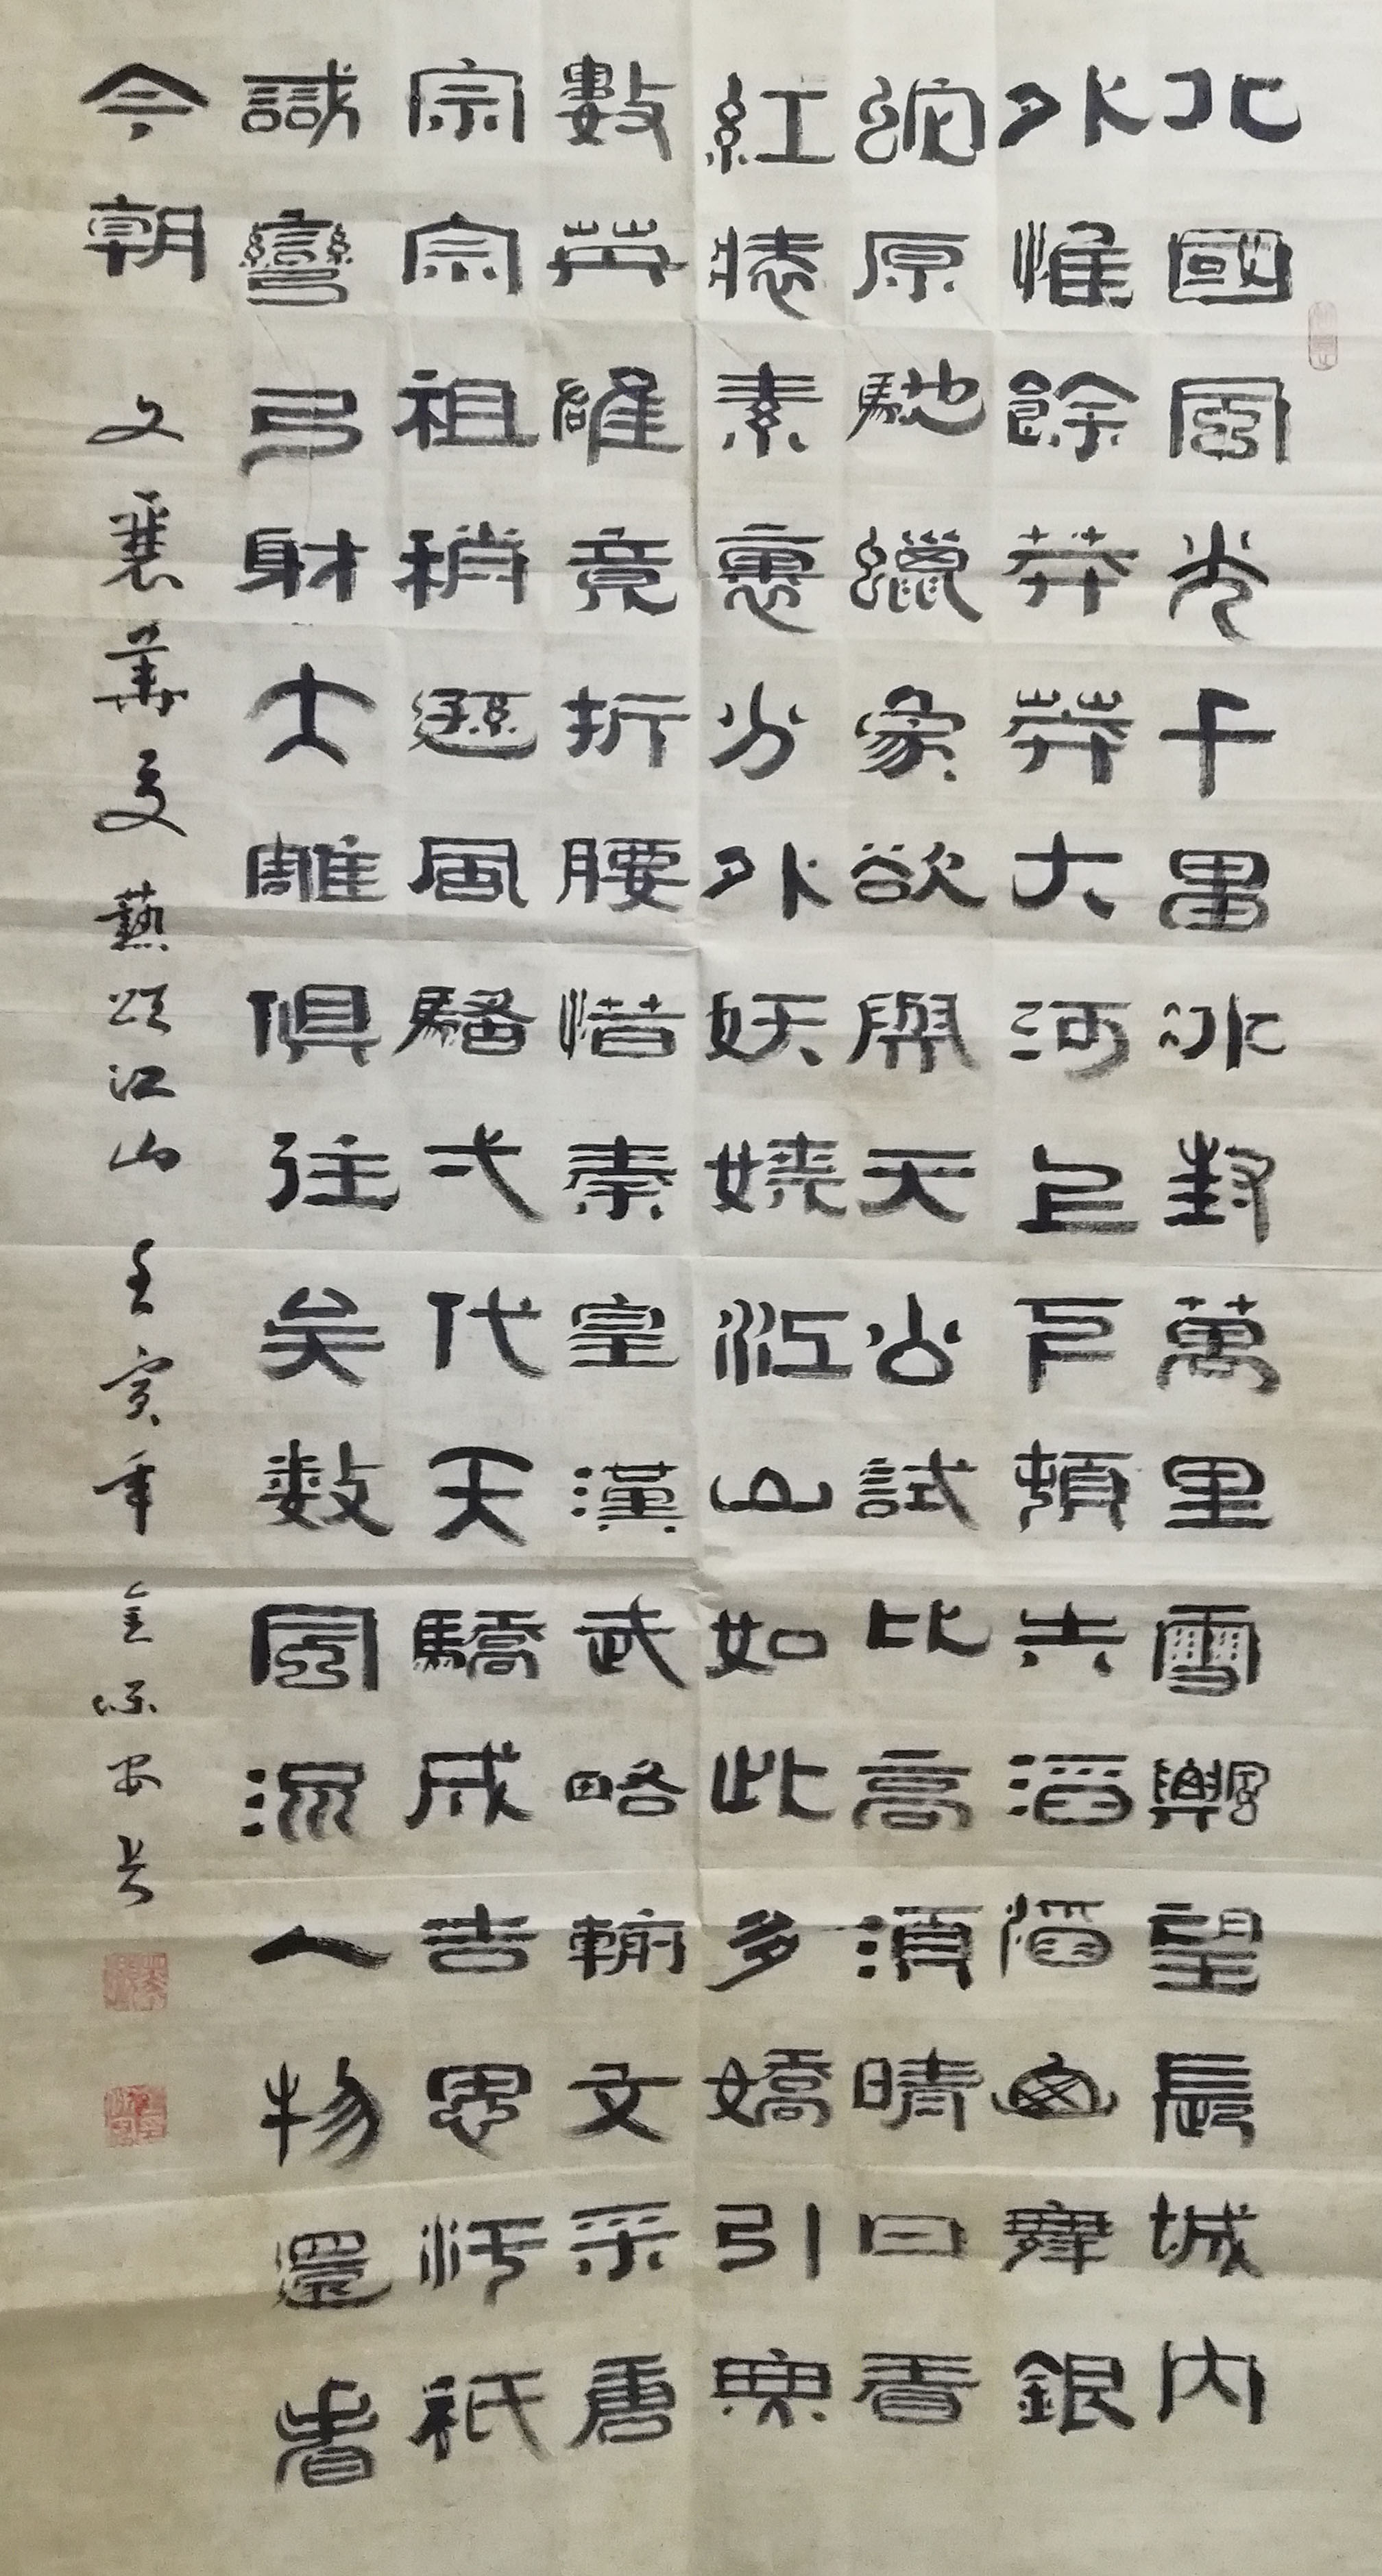 北國風光千里冰封萬里雪飄望長城內
外惟餘莽莽大河上下頓失滔滔山舞銀
蛇原馳蠟象欲與天公試比高須晴日看
紅裝素裹分外妖嬈江山如此多嬌引無
數英雄竟折腰惜秦皇漢武略輸文采唐
宗宋祖稍遜風騷弌代天驕成吉思汗祇
識彎弓射大雕俱往矣數風流人物還看
今朝 文襲華夏藝頌江山 壬寅年 金源安